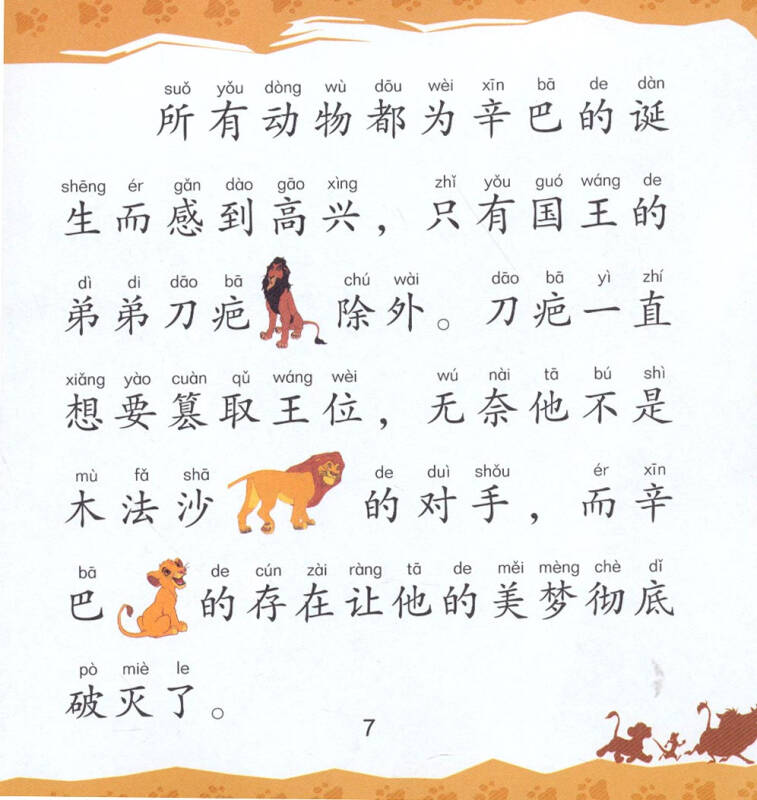 suǒ yǒu dòng wù dōu wèi xīn bā de dàn
所有动物都为辛巴的诞
shēng ér gǎn dào gāo xìng zhǐ yǒu guó wáng de
生而感到高兴，只有国王的
dì di dāo bā chú wài dāo bā yì zhí
弟弟刀疤除外。刀疤一直
xiǎng yào cuàn qǔ wáng wèi wú nài tā bú shì
想要篡取王位，无奈他不是
mù fǎ shā de duì shǒu ér xīn
木法沙的对手，而辛
bā de cún zài ràng tā de měi mèng chè dǐ
巴的存在让他的美梦彻底
pò miè le
破灭了。
7